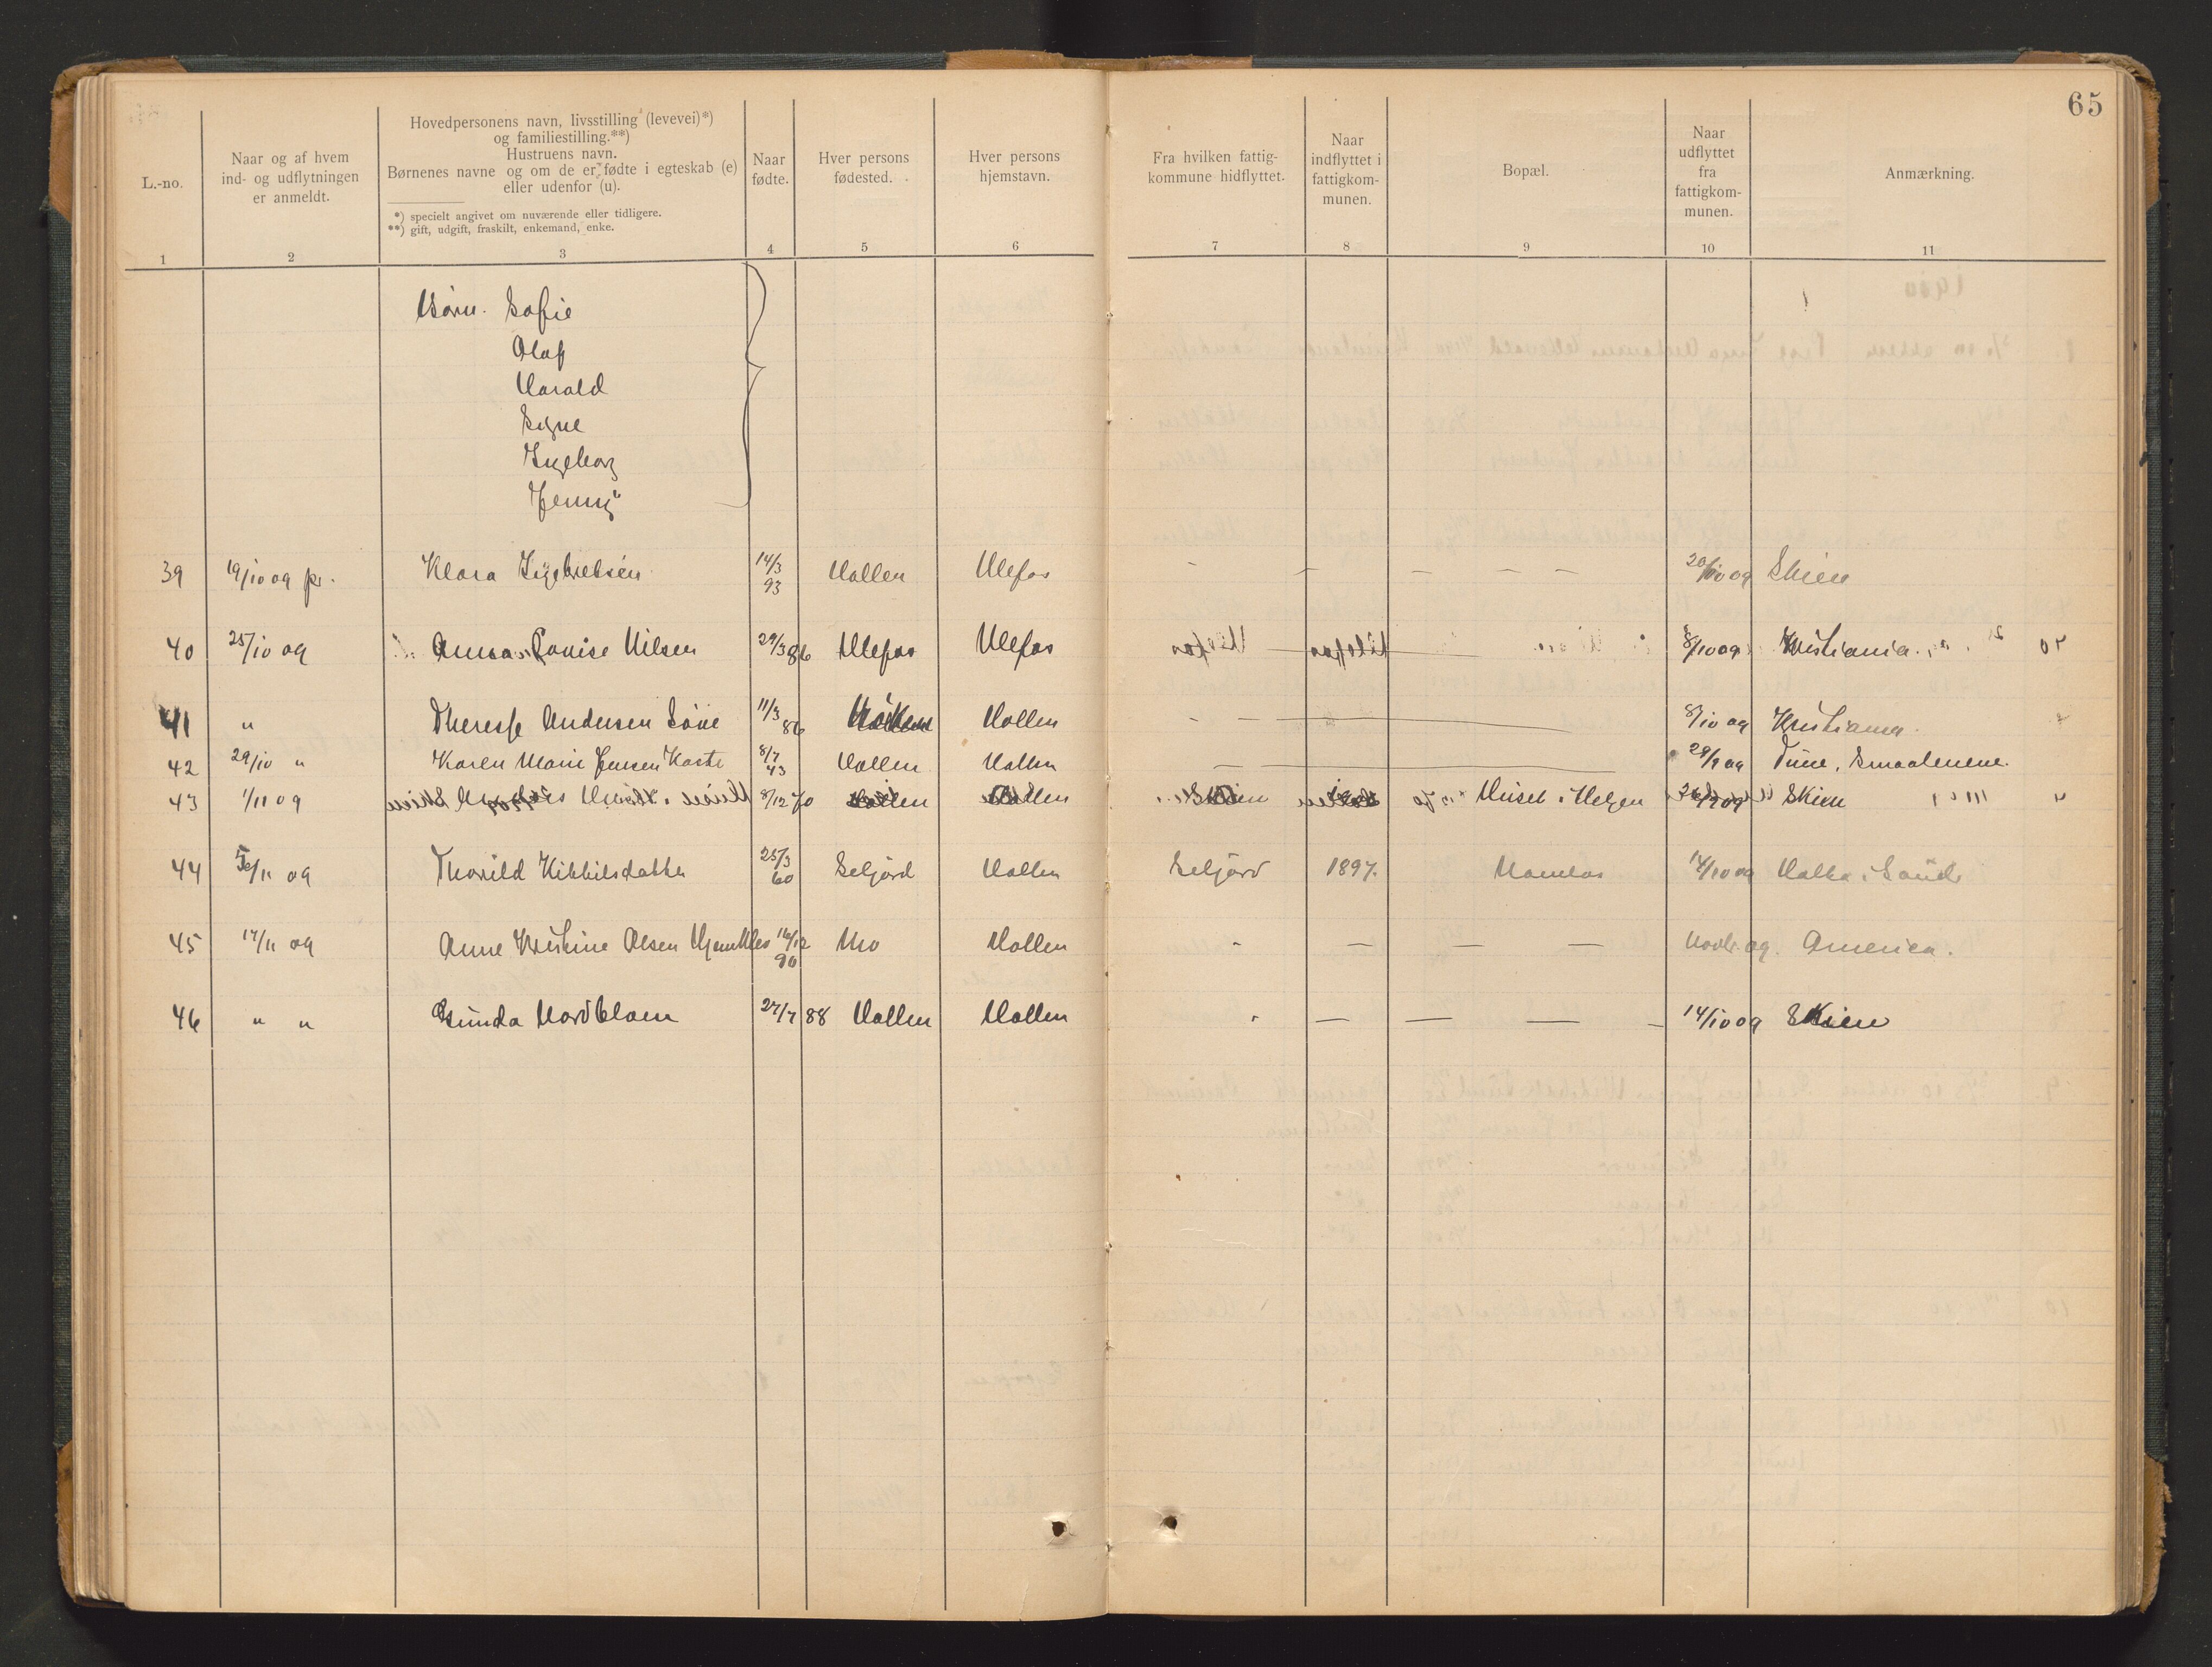 65
L.-no.
Naar og af hvem
ind- og udflytningen
er anmeldt.
Hovedpersonens navn, livsstilling (levevei)*)
og familiestilling.**)
Hustruens navn.
Børnenes navne og om de er fødte i egteskab (e)
eller udenfor (u).
*) specielt angivet om nuværende eller tidligere.
**) gift, udgift, fraskilt, enkemand, enke.
Naar
fødte.
Hver persons
fødested.
Hver persons
hjemstavn.
Fra hvilken fattig-
kommune hidflyttet.
Naar
indflyttet i
fattigkom-
munen.
Bopæl.
Naar
udflyttet
fra
fattigkom-
munen.
Anmærkning.
1 2 3 4 5 6 7 8 9 10 11
Børn. Sofie
Olaf
Harald
Signe
Ingeborg
Jenny
39 19/10 09 pr. Klara Ingebretsen 14/3 93 Hollen Ulefos - - - - - 20/10 09 Skien
40 25/10 09 Anna Louise Nilsen 29/3 86 Ulefos Ulefos — 8/10 09 Kristiania.
41 " Theresse Andersen Søve 11/3 86 Hollen - — 8/10 09 Kristiania.
42 29/10 " Karen Marie Jensen Kaste 8/7 43 Hollen Hollen — 29/9 09 Tune, Smaalenene.
43 1/11 09 8/12 70 Hollen Hollen Skien i Helgen 09 Skien
44 5/11 09 Thorild Kittilsdatter 25/3 60 Seljord Hollen Seljord 1897. Namlos 14/10 09 Holta i Saude
45 17/11 09 Anne Kristine Olsen 16/12 90 Mo Hollen - — — — Novbr 09. America.
46 " " Gunda Nordblom 27/7 88 Hollen Hollen - — — — — 14/10 09 Skien